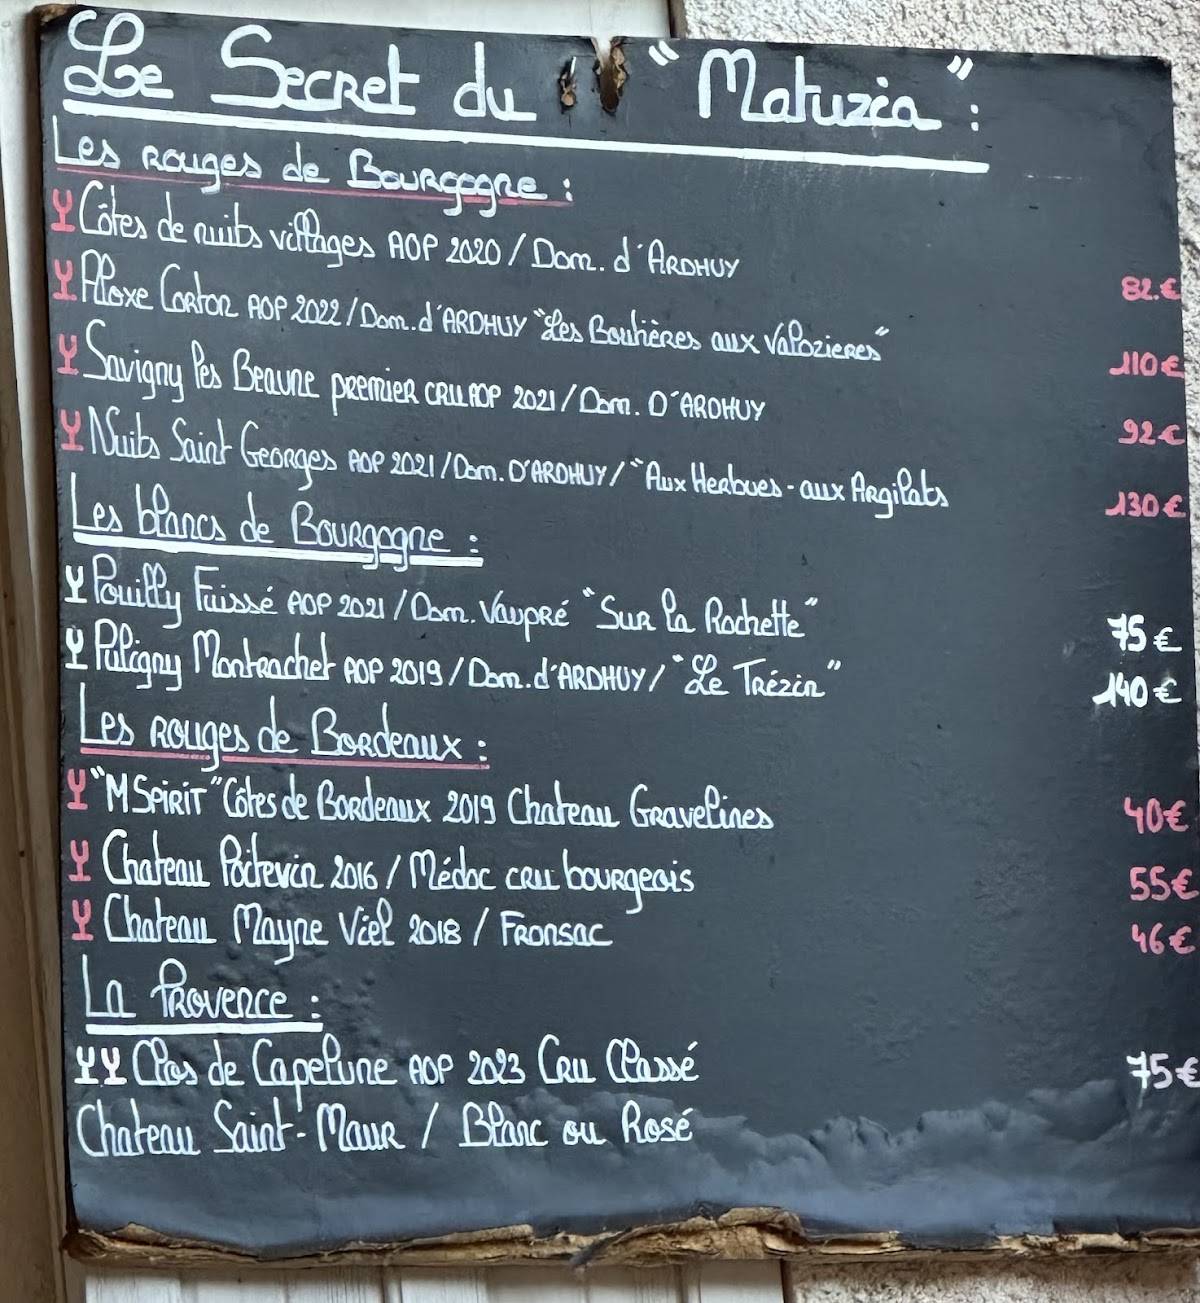 Le Secret du "Matuzia":
Les rouges de Bourgogne :
Côtes de nuits villages AOP 2020 / Dom. d'ARDHUY 82.€
Aloxe Corton AOP 2022 / Dom. d'ARDHUY "Les Boutières aux Valozieres" 110€
Savigny les Beaune premier cru AOP 2021 / Dom. D'ARDHUY 92€
Nuits Saint Georges AOP 2021 / Dom. D'ARDHUY / "Aux Herbues - aux Argilats 130€
Les blancs de Bourgogne :
Pouilly Fuissé AOP 2021 / Dom. Vaupré "Sur la Rochette" 75€
Puligny Montrachet AOP 2019 / Dom. d'ARDHUY / "Le Trézin" 140€
Les rouges de Bordeaux :
"M SPIRIT" Côtes de Bordeaux 2019 Chateau Gravelines 40€
Chateau Poitevin 2016 / Médoc cru bourgeois 55€
Chateau Mayne Viel 2018 / Fronsac 46€
La Provence :
Clos de Capelune AOP 2023 Cru Classé 75€
Chateau Saint-Maur / Blanc ou Rosé